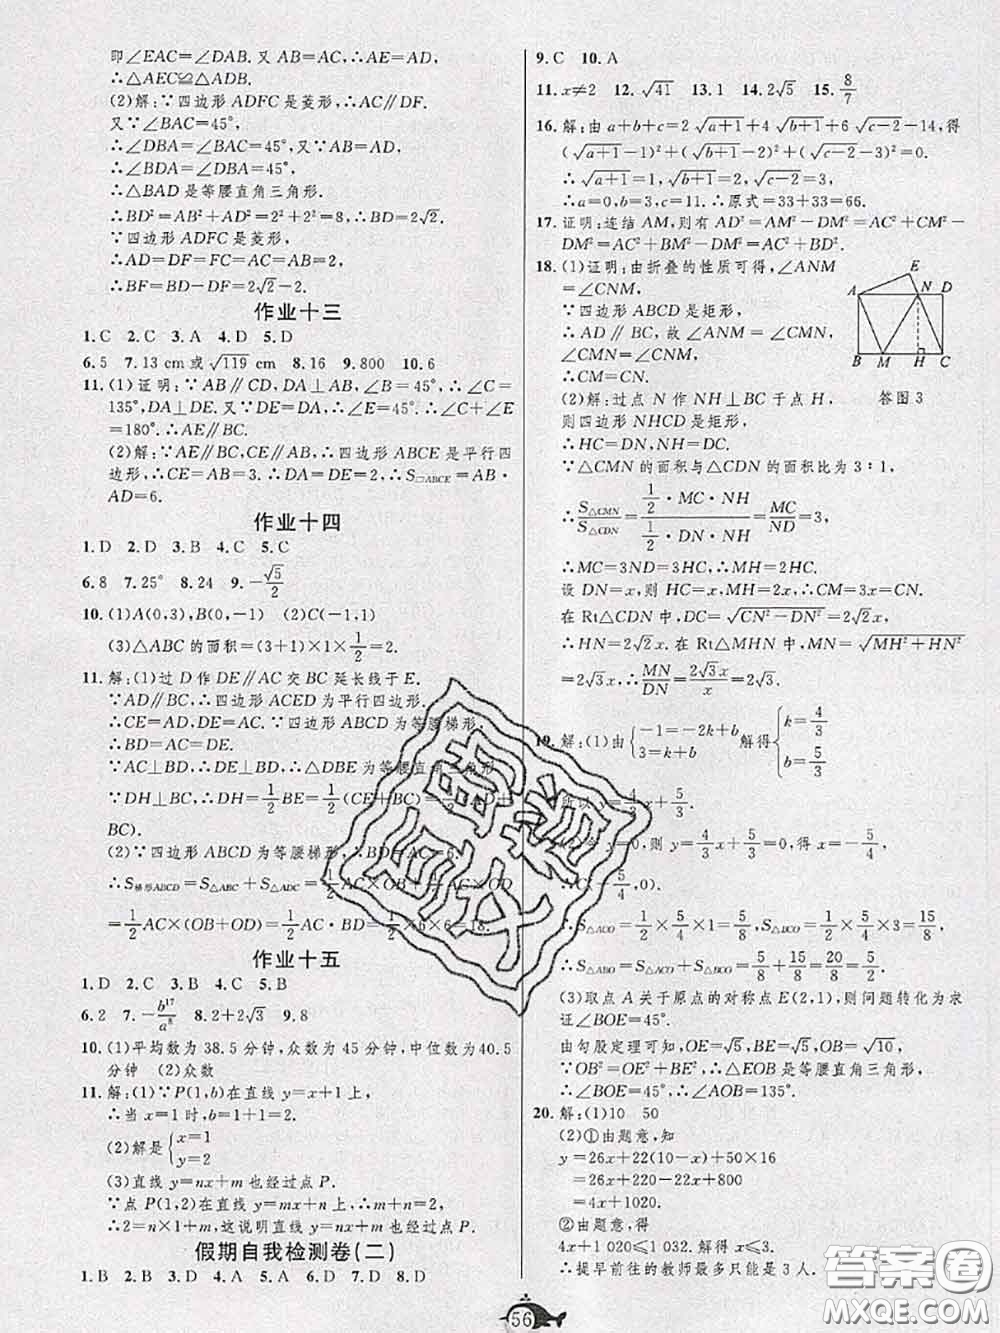 即∠EAC=∠DAB.又AB=AC,∴AE=AD,
∴△AEC≌△ADB.
(2)解:∵四边形ADFC是菱形,∴AC∥DF.
又∵∠BAC=45°,
∴∠DBA=∠BAC=45°,又∵AB=AD,
∴∠BDA=∠DBA=45°,
∴△BAD是等腰直角三角形.
∴BD²=AB²+AD²=2²+2²=8,∴BD=2√2.
∵四边形ADFC是菱形,
∴AD=DF=FC=AC=AB=2,
∴BF=BD-DF=2√2-2.
作业十三
1.C 2.C 3.A 4.D 5.D
6.5 7.13 cm或√119 cm 8.16 9.800 10.6
11.(1)证明:∵AB∥CD,DA⊥AB,∠B=45°,∴∠C=
135°,DA⊥DE.又∵DE=DA,∴∠E=45°.∴∠C+∠E
=180°.∴AE∥BC.
(2)解:∵AE∥BC,CE∥AB,∴四边形ABCE是平行四
边形,∴CE=AB=3.∴DA=DE=2,∴S▱ABCE=AB·
AD=6.
作业十四
1.D 2.D 3.B 4.C 5.C
6.8 7.25° 8.24 9.-√5/2
10.(1)A(0,3),B(0,-1) (2)C(-1,1)
(3)△ABC的面积=(3+1)×1×1/2=2.
11.解:(1)过D作DE∥AC交BC延长线于E.
∵AD∥BC,∴四边形ACED为平行四边形.
∴CE=AD,DE=AC.∵四边形ABCD为等腰梯形,
∴BD=AC=DE.
∵AC⊥BD,∴DE⊥BD,∴△DBE为等腰直角三角形
∵DH⊥BC,∴DH=1/2BE=1/2(CE+BC)=1/2(AD+
BC).
(2)∵四边形ABCD为等腰梯形,∴BD=AC=6.
∴S梯形ABCD=S△ABC+S△ADC=1/2AC×OB+1/2AC×OD
=1/2AC×(OB+OD)=1/2AC·BD=1/2×6×6=18.
作业十五
1.D 2.C 3.B 4.C 5.B
6.2 7.-b¹⁷/a⁸ 8.2+2√3 9.8
10.(1)平均数为38.5分钟,众数为45分钟,中位数为40.5
分钟 (2)众数
11.解:(1)∵P(1,b)在直线y=x+1上,
∴当x=1时,b=1+1=2.
(2)解是{x=1
y=2
(3)直线y=nx+m也经过点P.
∵点P(1,2)在直线y=mx+n上,∴m+n=2,
∴2=n×1+m,这说明直线y=nx+m也经过点P.
假期自我检测卷(二)
1.B 2.D 3.D 4.C 5.D 6.B 7.D 8.D
9.C 10.A
11.x≠2 12.√41 13.1 14.2√5 15.8/7
16.解:由a+b+c=2√(a+1)+4√(b+1)+6√(c-2)-14,得
(√(a+1)-1)²+(√(b+1)-2)²+(√(c-2)-3)²=0.
∴√(a+1)=1,√(b+1)=2,√(c-2)=3,
∴a=0,b=3,c=11.∴原式=33+33=66.
17.证明:连结AM,则有AD²=AM²-DM²=AC²+CM²-
DM²=AC²+BM²-DM²=AC²+BD².
18.(1)证明:由折叠的性质可得,∠ANM
=∠CNM,
∵四边形ABCD是矩形,
∴AD∥BC,故∠ANM=∠CMN,
∴∠CMN=∠CNM,
∴CM=CN.
E
A N D
B M H C
答图3
(2)解:过点N作NH⊥BC于点H,
则四边形NHCD是矩形,
∴HC=DN,NH=DC.
∵△CMN的面积与△CDN的面积比为3∶1,
∴S△CMN/S△CDN=(1/2·MC·NH)/(1/2·DN·NH)=MC/ND=3,
∴MC=3ND=3HC,∴MH=2HC.
设DN=x,则HC=x,MH=2x,∴CM=3x=CN,
在Rt△CDN中,DC=√(CN²-DN²)=2√2x,
∴HN=2√2x.在Rt△MHN中,MN=√(MH²+HN²)
=2√3x,∴MN/DN=2√3x/x=2√3.
19.解:(1)由{-1=-2k+b
3=k+b 解得{k=4/3
b=5/3
所以y=4/3x+5/3.
(2)令y=0,则y=4/3x+5/3=0,解得x=-5/4
∴C(-5/4,0).
∴S△ACO=1/2×5/4×1=5/8,S△BCO=1/2×5/4×3=15/8
∴S△ABO=S△ACO+S△BCO=5/8+15/8=20/8=5/2.
(3)取点A关于原点的对称点E(2,1),则问题转化为求
证∠BOE=45°.
由勾股定理可知,OE=√5,BE=√5,OB=√10,
∵OB²=OE²+BE²,∴△EOB是等腰直角三角形.
∴∠BOE=45°,∴∠AOB=135°.
20.解:(1)10 50
(2)①由题意,知
y=26x+22(10-x)+50×16
=26x+220-22x+800
=4x+1020.
②由题意,得
4x+1 020≤1 032.解得x≤3.
∴提早前往的教师最多只能是3人.
56
答案圈
MXQE.COM